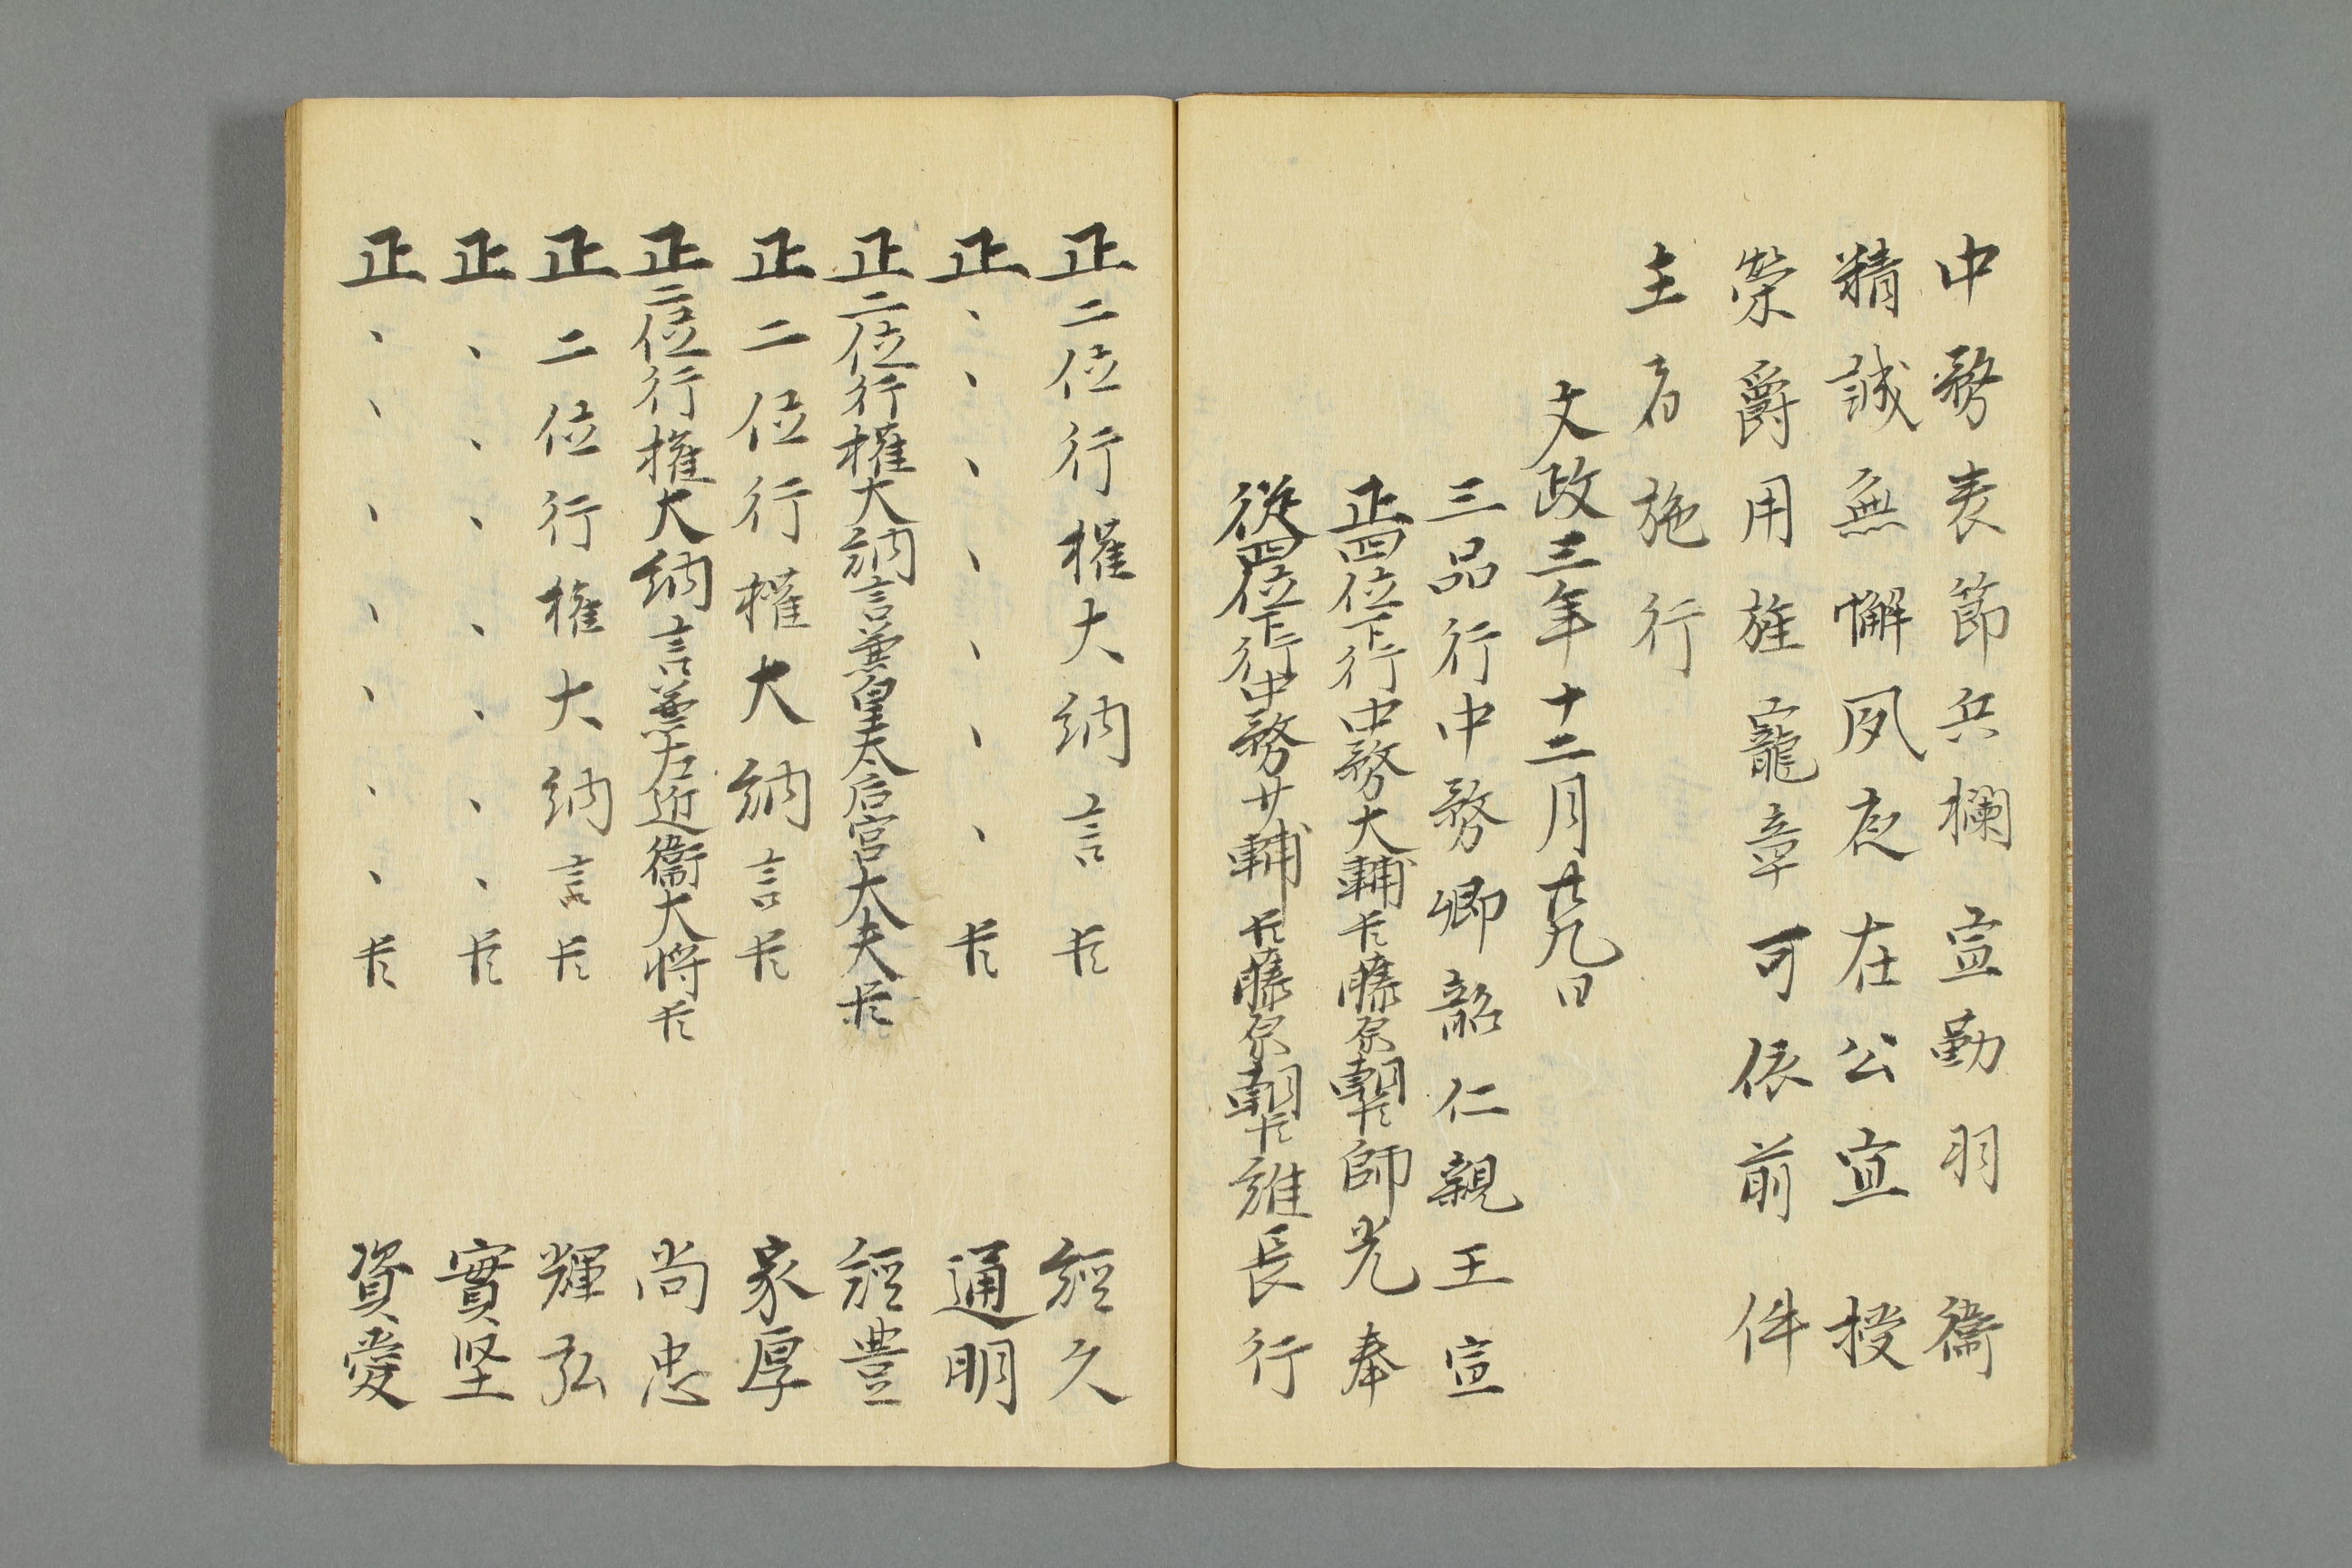 中務表節兵欄宣勤羽衞
精誠無懈夙夜在公宜授
榮爵用旌寵章可依前件
主者施行
文政三年十二月廿九日
三品行中務卿韶仁親王宣
正四位下行中務大輔臣藤原朝臣師光奉
從四位下行中務少輔臣藤原朝臣維長行
正二位行權大納言臣經久
正、、、、、、、臣通明
正二位行權大納言兼皇太后宮大夫臣經豊
正二位行權大納言臣家厚
正二位行權大納言兼右近衞大将臣尚忠
正二位行權大納言臣輝弘
正、、、、、、臣實堅
正、、、、、、、臣資愛